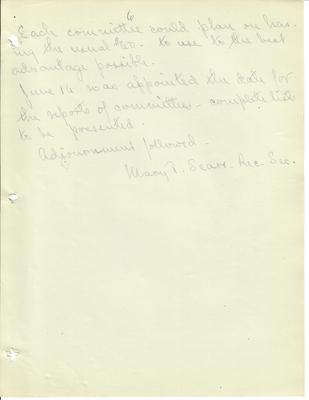 6
Each committee could plan on hav-
ing the usual $20. to use to the best
advantage possible.
June 14 was appointed the date for
the reports of committees - complete list
to be presented.
Adjournment followed -
Mary T. Sears. Rec. Sec.